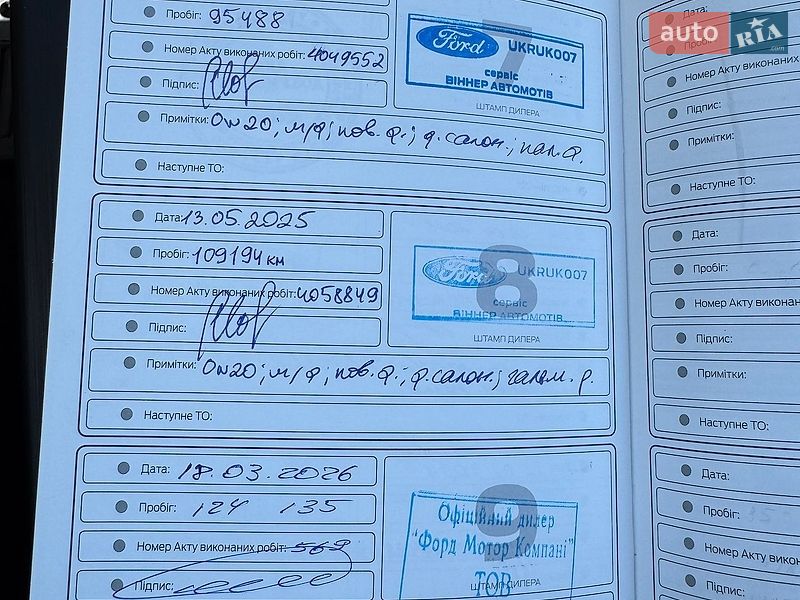 Пробіг: 95488
Номер Акту виконаних робіт: 4049552
Підпис:
Примітки: 0w20; м/ф; пов. ф.; ф. салон.; пал. ф.
Наступне ТО:
7
Ford UKRUK007
сервіс
ВІННЕР АВТОМОТІВ
ШТАМП ДИЛЕРА
Дата: 13.05.2025
Пробіг: 109194 км
Номер Акту виконаних робіт: 4058849
Підпис:
Примітки: 0w20; м/ф; пов. ф.; ф. салон.; гальм. р.
Наступне ТО:
8
Ford UKRUK007
сервіс
ВІННЕР АВТОМОТІВ
ШТАМП ДИЛЕРА
Дата: 18.03.2026
Пробіг: 124 135
Номер Акту виконаних робіт: 569
Підпис:
9
Офіційний дилер
"Форд Мотор Компані"
ТОВ
ШТАМП ДИЛЕРА
Дата:
Пробіг:
Номер Акту виконаних
Підпис:
Примітки:
Наступне ТО:
Дата:
Пробіг:
Номер Акту виконан
Підпис:
Примітки:
Наступне ТО:
Дата:
Пробіг:
Номер Акту виконан
Підпис:
auto RIA .com